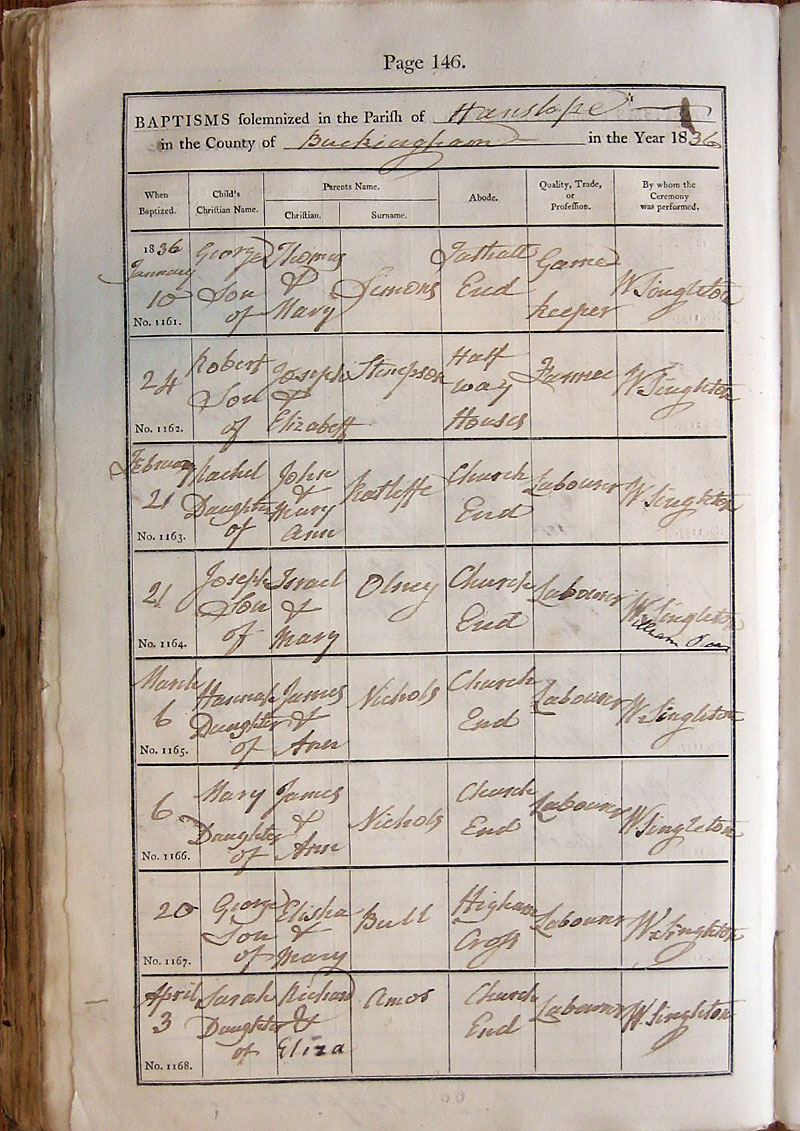 Page 146.
BAPTISMS solemnized in the Parish of Hanslope
in the County of Buckingham in the Year 1836
When Baptized.
Child's Christian Name.
Parents Name.
Christian.
Surname.
Abode.
Quality, Trade, or Profession.
By whom the Ceremony was performed.
1836
January
10
No. 1161.
George
Son
of
Thomas
&
Mary
Simons
End
Game
keeper
W Singleton
24
No. 1162.
Robert
Son
of
Joseph
&
Elizabeth
Stimpson
Half
way
Houses
Farmer
W Singleton
February
21
No. 1163.
Rachel
Daughter
of
John
&
Mary
Ann
Ratliffe
Church
End
Labourer
W Singleton
21
No. 1164.
Joseph
Son
of
Israel
&
Mary
Olney
Church
End
Labourer
W Singleton
William
March
6
No. 1165.
Hannah
Daughter
of
James
&
Ann
Nichols
Church
End
Labourer
W Singleton
6
No. 1166.
Mary
Daughter
of
James
&
Ann
Nichols
Church
End
Labourer
W Singleton
20
No. 1167.
George
Son
of
Elisha
&
Mary
Bull
Higham
Cross
Labourer
W Singleton
April
3
No. 1168.
Sarah
Daughter
of
Richard
&
Eliza
Amos
Church
End
Labourer
W Singleton